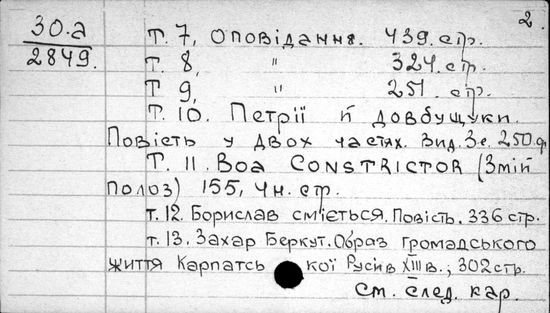 2.
30.а
2849.
Т. 7, Оповідання. 439. стр.
Т. 8, " 324. стр.
Т 9, " 251. стр.
Т. 10. Петрії й довбущуки.
Повість у двох частях. Вид. 3е. 250.ст
Т. 11. Boa CONSTRICTOR (Змій
полоз) 155, чн. стр.
т. 12. Борислав сміється. Повість. 336 стр.
т. 13. Захар Беркут. Образ громадського
життя Карпатсь кої Руси в XIII в.; 302 стр.
См. след. кар.